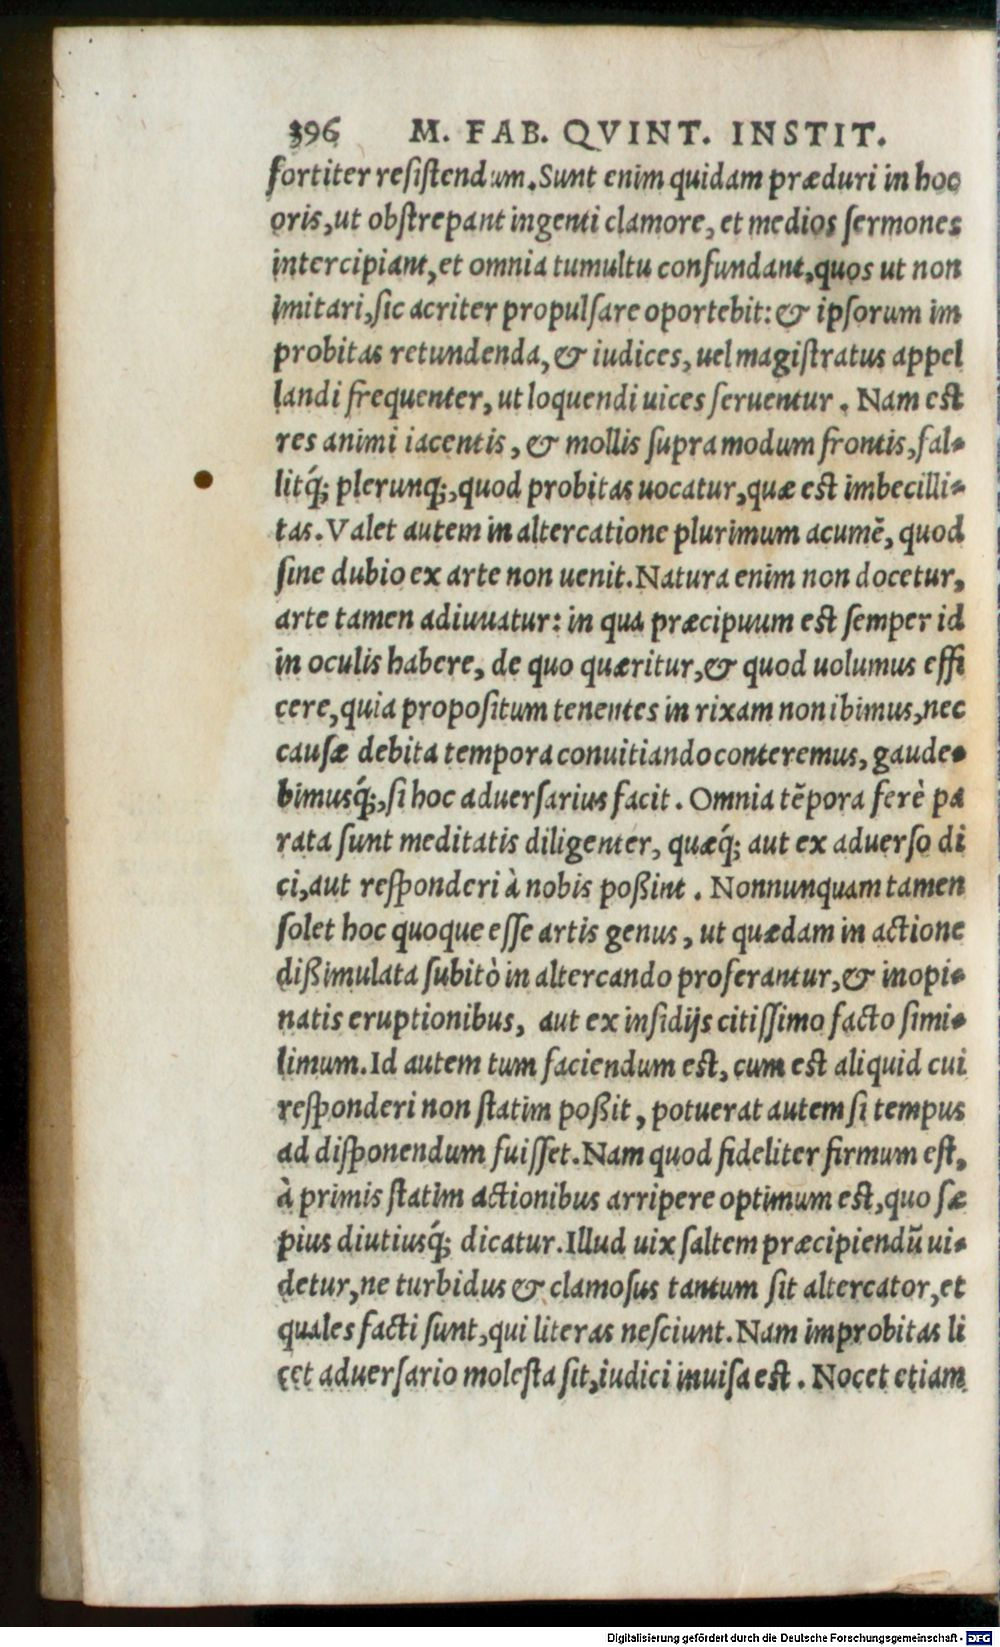 396 M. FAB. QVINT. INSTIT.
fortiter resistendum. Sunt enim quidam præduri in hoc
oris, ut obstrepant ingenti clamore, et medios sermones
intercipiant, et omnia tumultu confundant, quos ut non
imitari, sic acriter propulsare oportebit: & ipsorum im
probitas retundenda, & iudices, uel magistratus appel
landi frequenter, ut loquendi uices seruentur. Nam est
res animi iacentis, & mollis supra modum frontis, fal-
litq́; plerunq;, quod probitas uocatur, quæ est imbecilli-
tas. Valet autem in altercatione plurimum acumẽ, quod
sine dubio ex arte non uenit. Natura enim non docetur,
arte tamen adiuuatur: in qua præcipuum est semper id
in oculis habere, de quo quæritur, & quod uolumus effi
cere, quia propositum tenentes in rixam non ibimus, nec
causæ debita tempora conuitiando conteremus, gaude-
bimusq́;, si hoc aduersarius facit. Omnia tẽpora ferè pa
rata sunt meditatis diligenter, quæq́; aut ex aduerso di
ci, aut responderi à nobis poßint. Nonnunquam tamen
solet hoc quoque esse artis genus, ut quædam in actione
dißimulata subitò in altercando proferantur, & inopi-
natis eruptionibus, aut ex insidijs citissimo facto simi-
limum. Id autem tum faciendum est, cum est aliquid cui
responderi non statim poßit, potuerat autem si tempus
ad disponendum fuisset. Nam quod fideliter firmum est,
à primis statim actionibus arripere optimum est, quo sæ
pius diutiusq́; dicatur. Illud uix saltem præcipiendũ ui-
detur, ne turbidus & clamosus tantum sit altercator, et
quales facti sunt, qui literas nesciunt. Nam improbitas li
cet aduersario molesta sit, iudici inuisa est. Nocet etiam
Digitalisierung gefördert durch die Deutsche Forschungsgemeinschaft - DFG